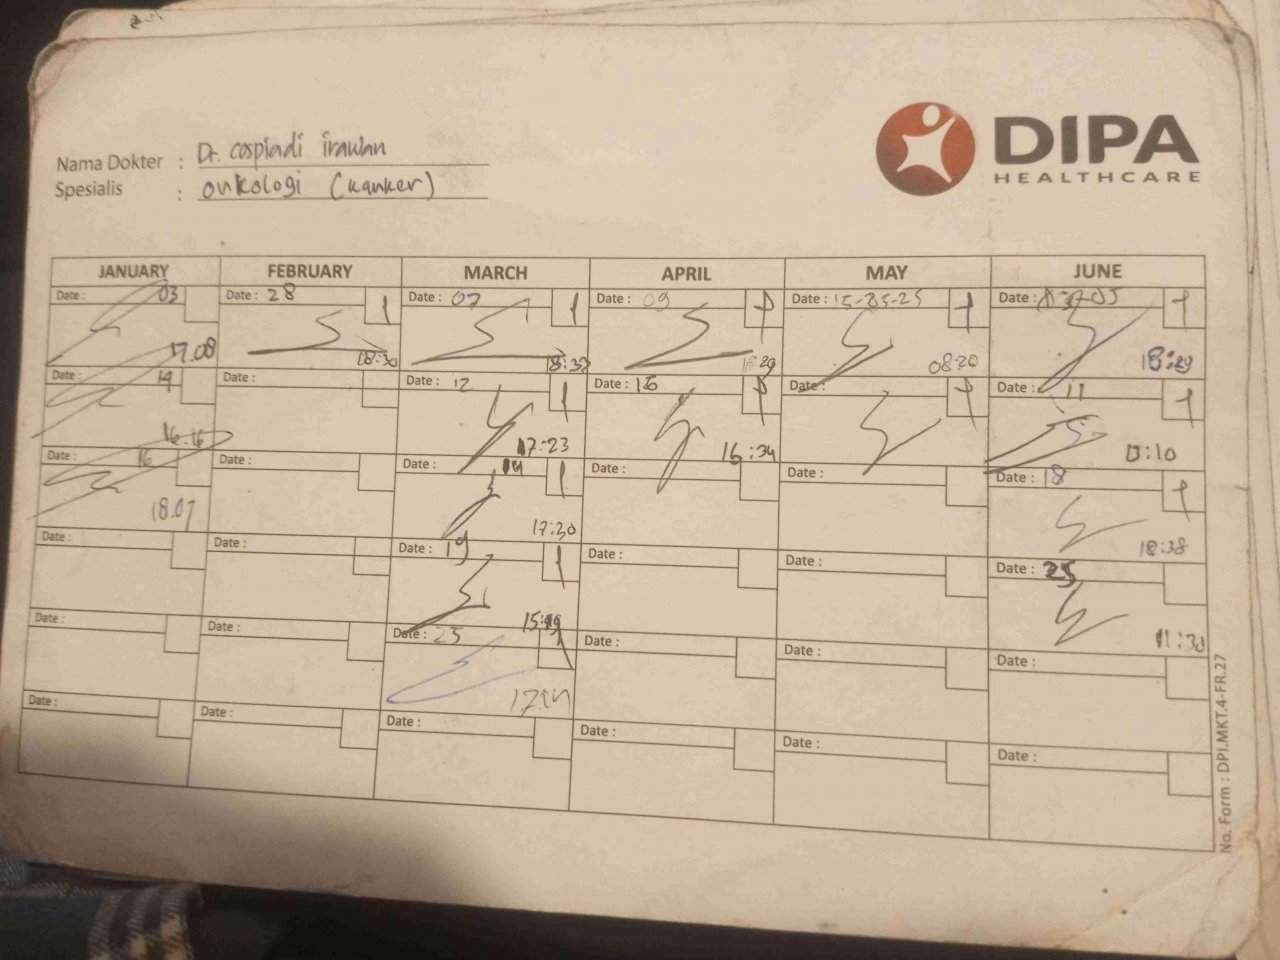 Nama Dokter : Dr. cospiadi irawan
Spesialis : onkologi (kanker)
DIPA
HEALTHCARE
JANUARY FEBRUARY MARCH APRIL MAY JUNE
Date : 03 Date : 28 Date : 07 Date : 09 Date : 15-05-25 Date :
17.08 18:30 18:38 08:20 18:29
Date : 14 Date : Date : 12 Date : 16 Date : Date : 11
16.16 17:23 16:34 :10
Date : 16 Date : Date : 14 Date : Date : Date : 18
18.07 17:20 18:38
Date : Date : Date : 19 Date : Date : Date : 25
15:49 11:30
Date : Date : Date : 25 Date : Date : Date :
Date : Date : Date : Date : Date : Date :
No. Form : DPI.MKT.4-FR.27